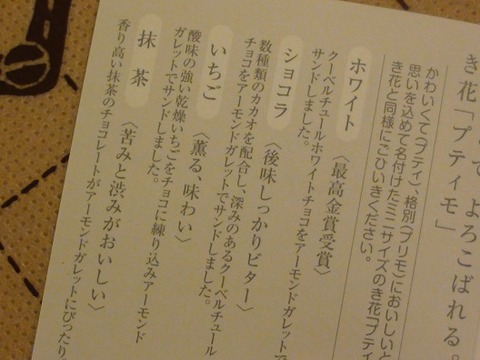 でよろこばれる。
き花「プティモ」
かわいくて〈プティ〉、格別〈プリモ〉においしいと
思いを込めて名付けたミニサイズのき花「プティ
き花と同様にごひいきください。
ホワイト 〈最高金賞受賞〉
クーベルチュールホワイトチョコをアーモンドガレットで
サンドしました。
ショコラ 〈後味しっかりビター〉
数種類のカカオを配合し、深みのあるクーベルチュール
チョコをアーモンドガレットでサンドしました。
いちご 〈薫る、味わい〉
酸味の強い乾燥いちごをチョコに練り込みアーモンド
ガレットでサンドしました。
抹茶 〈苦みと渋みがおいしい〉
香り高い抹茶のチョコレートがアーモンドガレットにぴったり